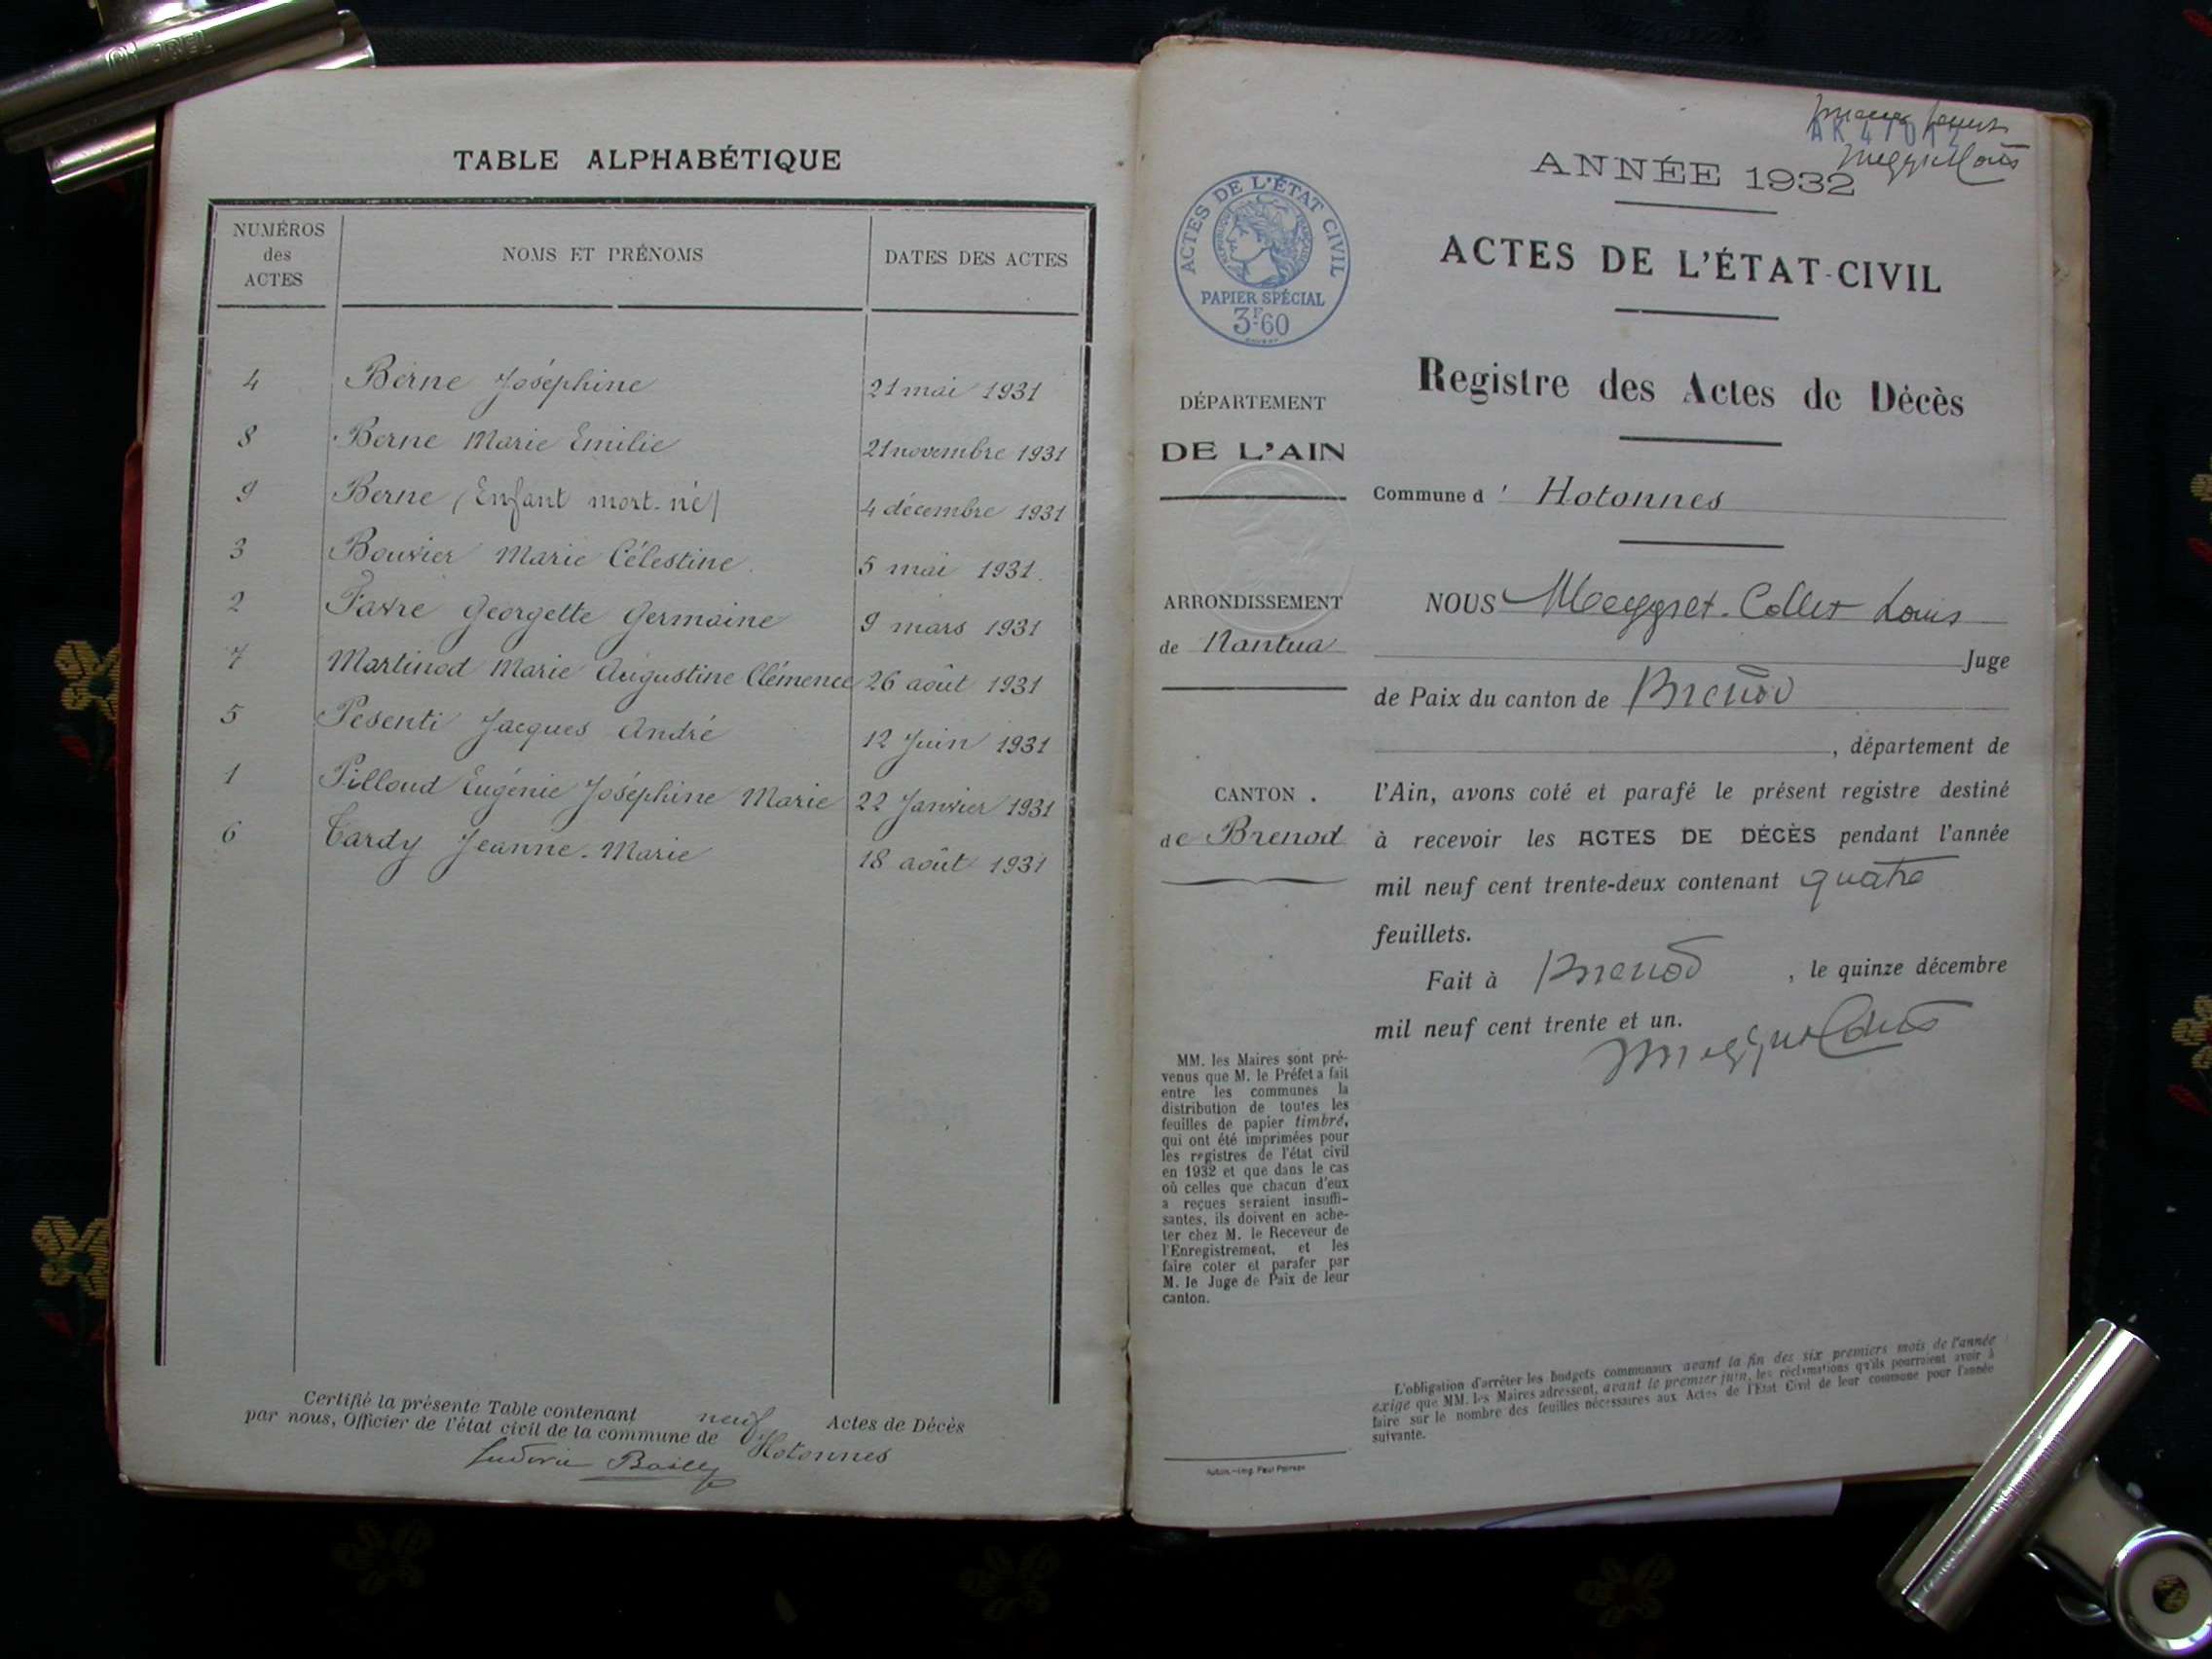 TABLE ALPHABÉTIQUE
NUMÉROS des ACTES NOMS ET PRÉNOMS DATES DES ACTES
4 Berne Joséphine 21 mai 1931
8 Berne Marie Emilie 21 novembre 1931
9 Berne (Enfant mort-né) 4 décembre 1931
3 Bouvier Marie Célestine. 5 mai 1931.
2 Favre Georgette Germaine 9 mars 1931
7 Martinod Marie Augustine Clémence 26 août 1931
5 Pesenti Jacques André 12 Juin 1931
1 Pilloud Eugénie Joséphine Marie 22 Janvier 1931
6 Tardy Jeanne-Marie 18 août 1931
Certifié la présente Table contenant neuf Actes de Décès
par nous, Officier de l'état civil de la commune de d'Hotonnes
Ludovic Bailly
ANNÉE 1932
ACTES DE L'ÉTAT CIVIL
PAPIER SPÉCIAL
3F60
ACTES DE L'ÉTAT-CIVIL
Registre des Actes de Décès
DÉPARTEMENT
DE L'AIN
Commune d' Hotonnes
ARRONDISSEMENT
de Nantua
CANTON.
de Brenod
NOUS Meygret-Collet Louis
Juge
de Paix du canton de Brenod
, département de
l'Ain, avons coté et parafé le présent registre destiné
à recevoir les ACTES DE DÉCÈS pendant l'année
mil neuf cent trente-deux contenant quatre
feuillets.
Fait à Brenod , le quinze décembre
mil neuf cent trente et un.
MM. les Maires sont pré-
venus que M. le Préfet a fait
entre les communes la
distribution de toutes les
feuilles de papier timbré,
qui ont été imprimées pour
les registres de l'état civil
en 1932 et que dans le cas
où celles que chacun d'eux
a reçues seraient insuffi-
santes, ils doivent en ache-
ter chez M. le Receveur de
l'Enregistrement, et les
faire coter et parafer par
M. le Juge de Paix de leur
canton.
L'obligation d'arrêter les budgets communaux avant la fin des six premiers mois de l'année
exige que MM. les Maires adressent, avant le premier juin, les réclamations qu'ils pourraient avoir à
faire sur le nombre des feuilles nécessaires aux Actes de l'Etat Civil de leur commune pour l'année
suivante.